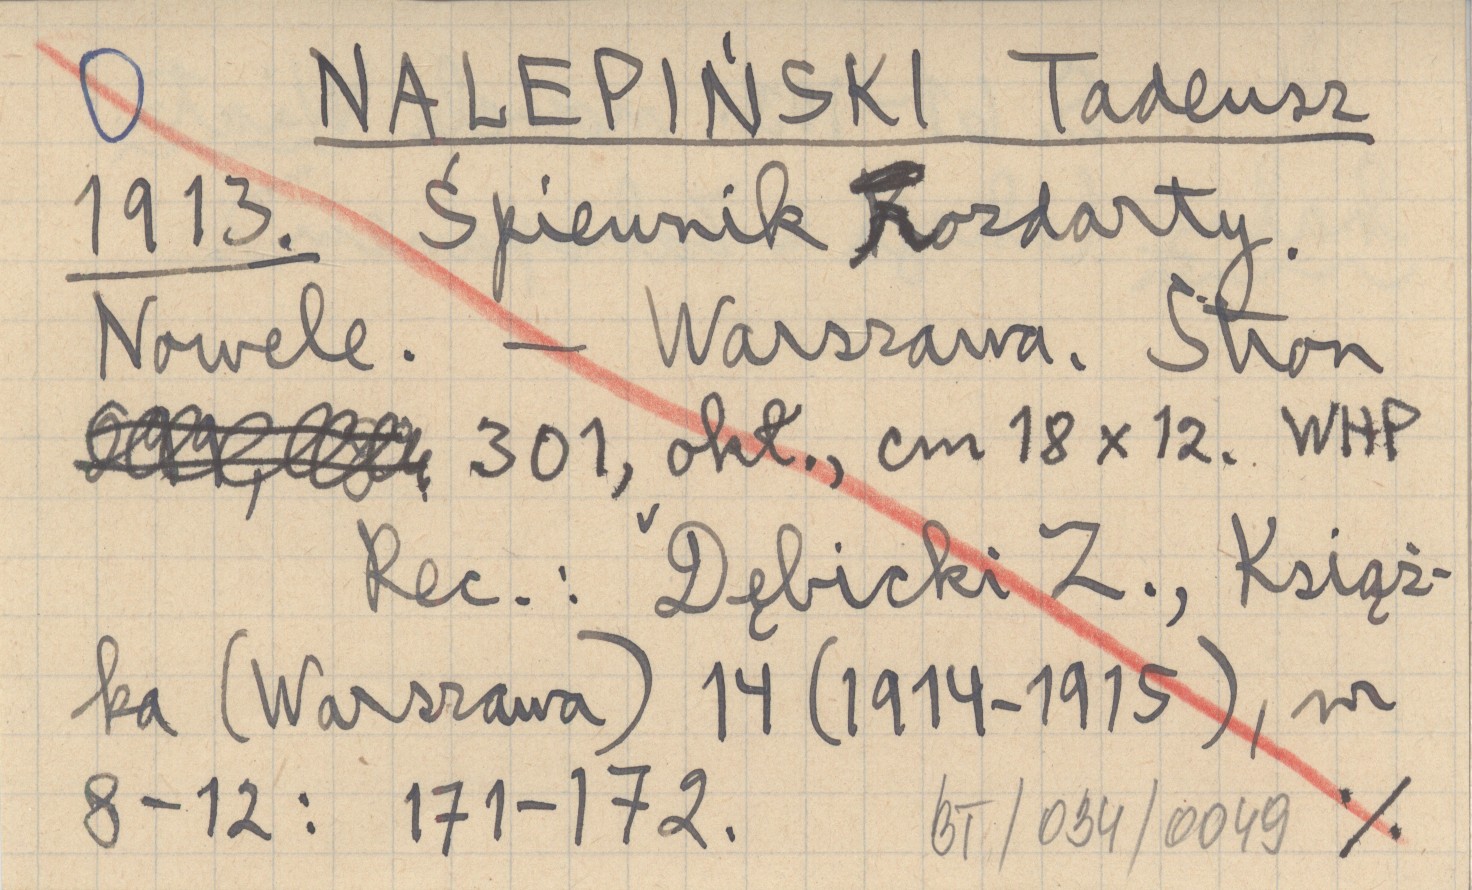 NALEPIŃSKI Tadeusz
1913. Śpiewnik Rozdarty.
Nowele. – Warszawa. Stron
301, okł., cm 18 x 12. WHP
Rec.: Dębicki Z., Książ-
ka (Warszawa) 14 (1914-1915), nr
8-12: 171-172. BT/034/0049 ·/.